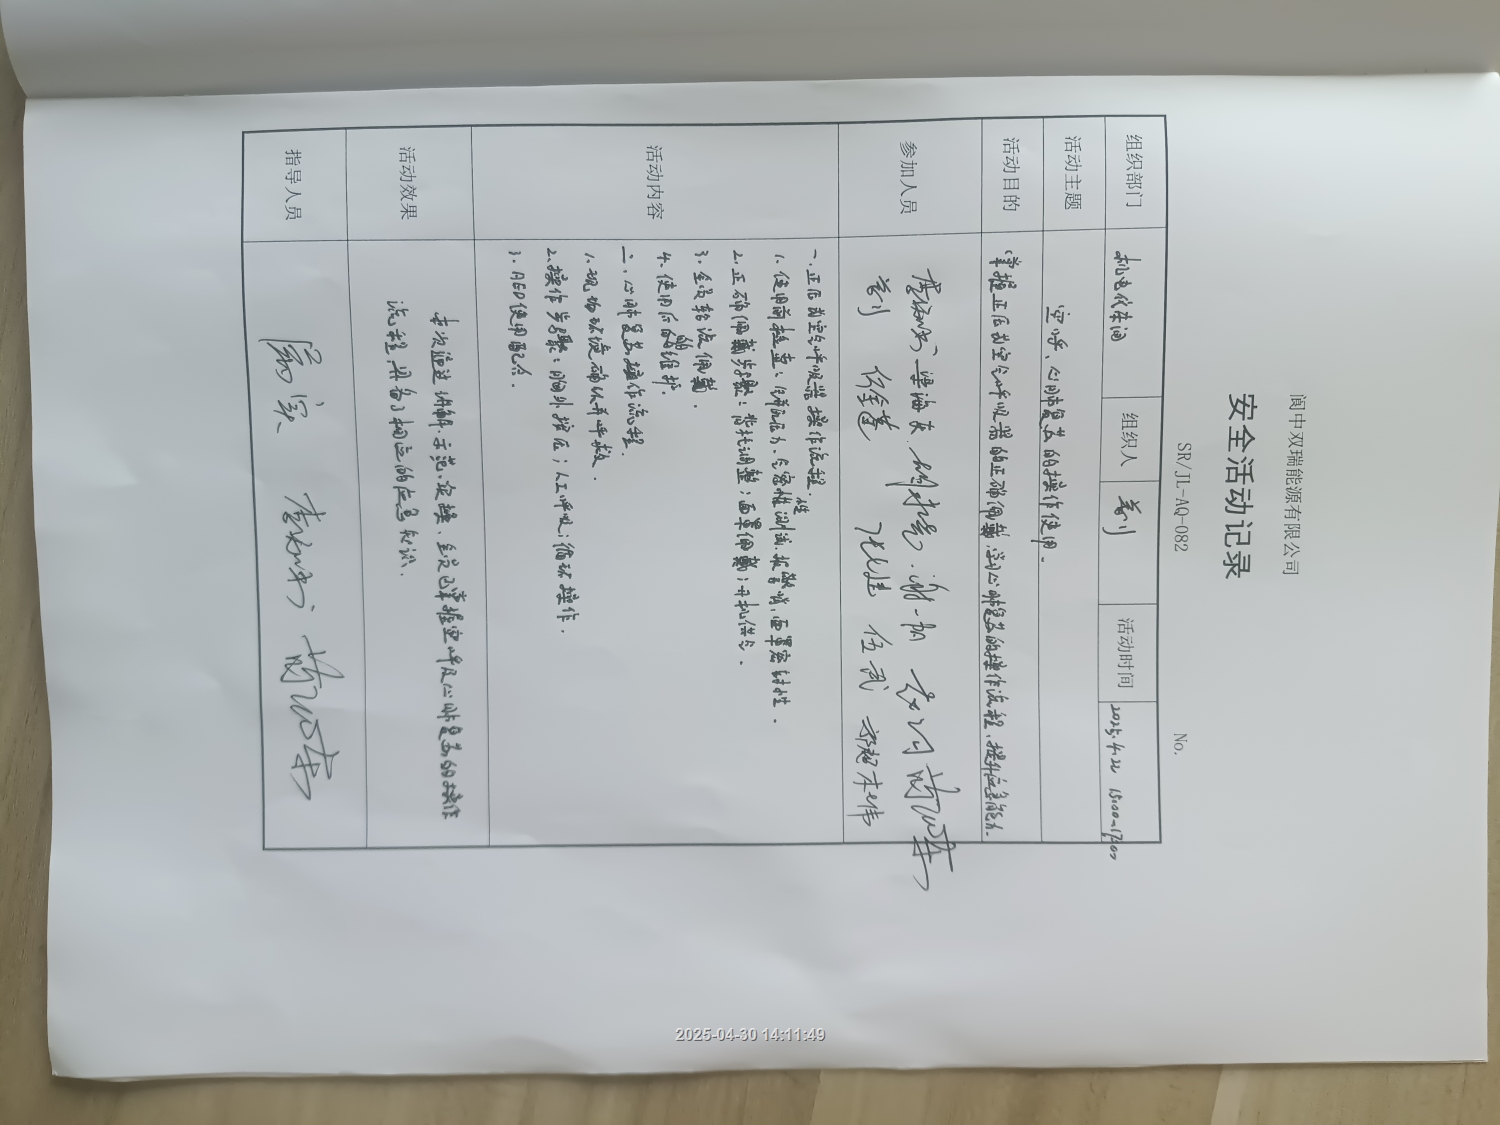 阆中双瑞能源有限公司
安全活动记录
SR/JL-AQ-082 No.
组织部门 机电仪车间 组织人 活动时间 2025.4.22 15:00-17:00
活动主题 空呼、心肺复苏的操作使用.
活动目的 掌握正压式空气呼吸器的正确佩戴,学习心肺复苏的操作流程,提升应急能力.
参加人员
梁海友
张建 伍武
活动内容
一.正压式空气呼吸器操作流程.
1.使用前检查:气瓶压力、气密性测试、报警哨、面罩密封性.
2.正确佩戴步骤:背托调整;面罩佩戴;开机供气.
3.全员轮流佩戴.
4.使用后的维护.
二.心肺复苏操作流程.
1.现场环境确认并呼救.
2.操作步骤:胸外按压;人工呼吸;循环操作.
3.AED使用配合.
活动效果
本次通过讲解、示范、实操,全员已掌握空呼及心肺复苏的操作
流程,具备了相应的应急知识.
指导人员
2025-04-30 14:11:49